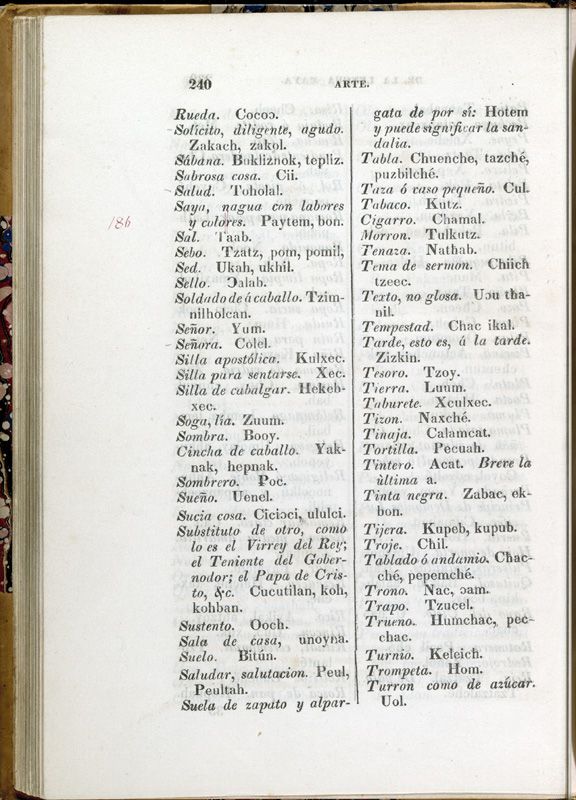 240
ARTE.
Rueda. Cocoɔ.
Solícito, diligente, agudo.
Zakach, zakol.
Sábana. Bukliznok, tepliz.
Sabrosa cosa. Cii.
Salud. Toholal.
Saya, nagua con labores
y colores. Paytem, bon.
Sal. Taab.
Sebo. Tzatz, pom, pomil,
Sed. Ukah, ukhil.
Sello. Ɔalab.
Soldado de á caballo. Tzim-
nilholcan.
Señor. Yum.
Señora. Colel.
Silla apostólica. Kulxec.
Silla para sentarse. Xec.
Silla de cabalgar. Hekeb-
xec.
Soga, lía. Zuum.
Sombra. Booy.
Cincha de caballo. Yak-
nak, hepnak.
Sombrero. Poc.
Sueño. Uenel.
Sucia cosa. Ciciɔci, ululci.
Substituto de otro, como
lo es el Virrey del Rey;
el Teniente del Gober-
nador; el Papa de Cris-
to, &c. Cucutilan, koh,
kohban.
Sustento. Ooch.
Sala de casa, unoyna.
Suelo. Bitún.
Saludar, salutacion. Peul,
Peultah.
Suela de zapato y alpar-
gata de por sí: Hotem
y puede significar la san-
dalia.
Tabla. Chuenche, tazché,
puzbilché.
Taza ó vaso pequeño. Cul.
Tabaco. Kutz.
Cigarro. Chamal.
Morron. Tulkutz.
Tenaza. Nathab.
Tema de sermon. Chiich
tzeec.
Texto, no glosa. Uɔu tha-
nil.
Tempestad. Chac ikal.
Tarde, esto es, á la tarde.
Zizkin.
Tesoro. Tzoy.
Tierra. Luum.
Taburete. Xculxec.
Tizon. Naxché.
Tinaja. Calamcat.
Tortilla. Pecuah.
Tintero. Acat. Breve la
última a.
Tinta negra. Zabac, ek-
bon.
Tijera. Kupeb, kupub.
Troje. Chil.
Tablado ó andamio. Chac-
ché, pepemché.
Trono. Nac, ɔam.
Trapo. Tzucel.
Trueno. Humchac, pec-
chac.
Turnio. Keleich.
Trompeta. Hom.
Turron como de azúcar.
Uol.
186